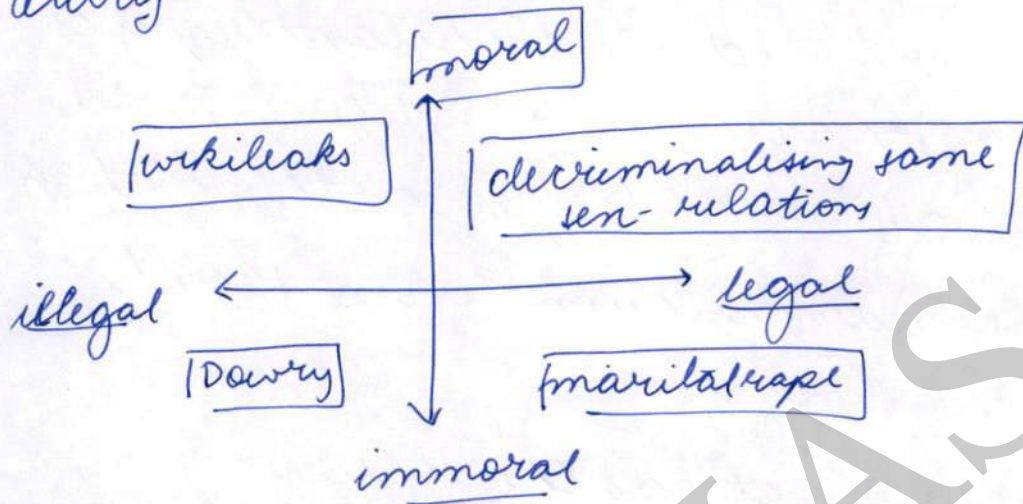 moral
wikileaks
decriminalising same
sex-relations
illegal
legal
Dowry
marital rape
immoral
IAS